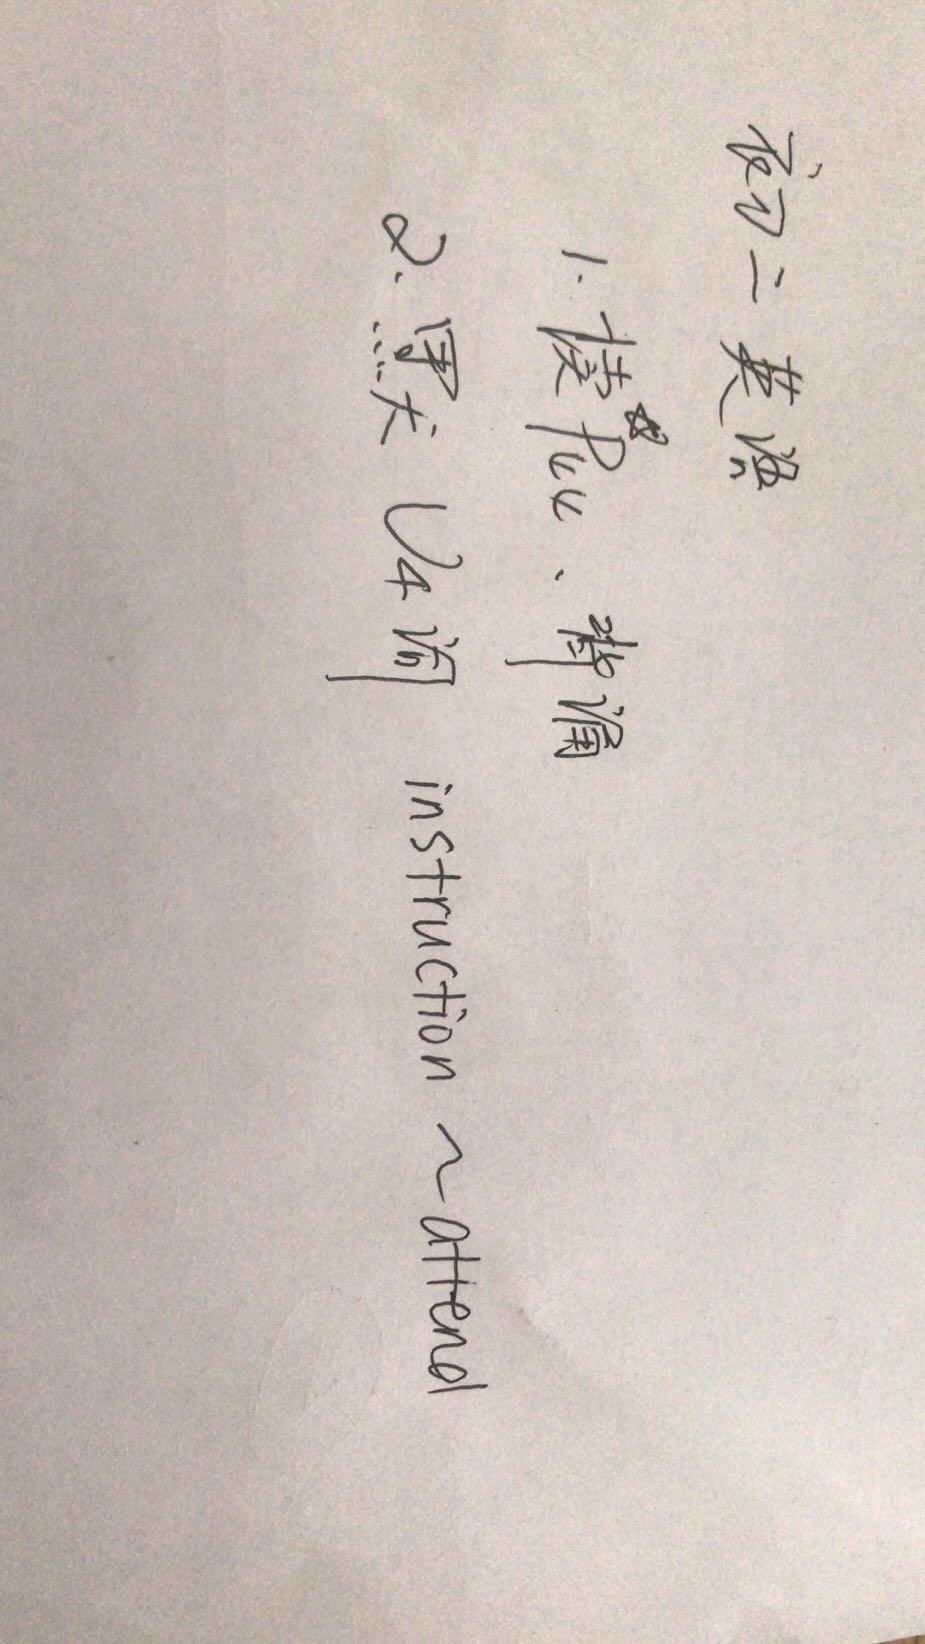 初二英语
1. 读P44、背诵
2. 默 U4词 instruction ~ attend